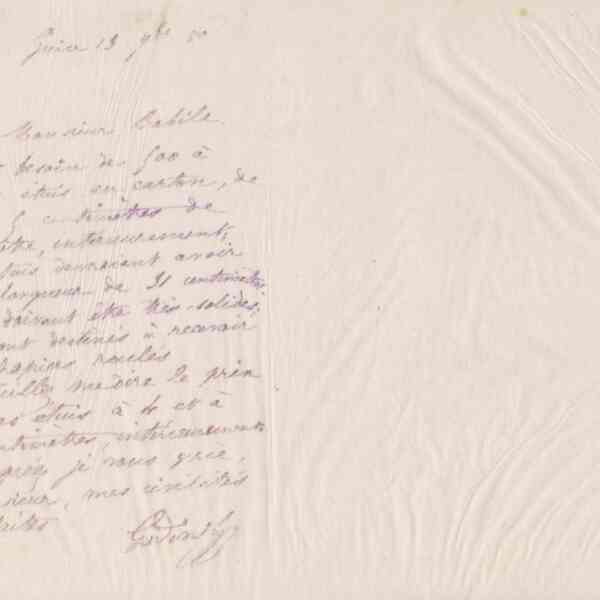 Guise 13 9bre 80
Monsieur Cabile
besoin de 500 à
étuis en carton, de
5 centimètres de
intérieurement;
devraient avoir
longueur de 21 centimètres
doivent être très-solides;
destinés à recevoir
papiers roulés
me dire le prix
étuis à 4 et à
centimètres, intérieurement
je vous prie,
mes civilités
Godin